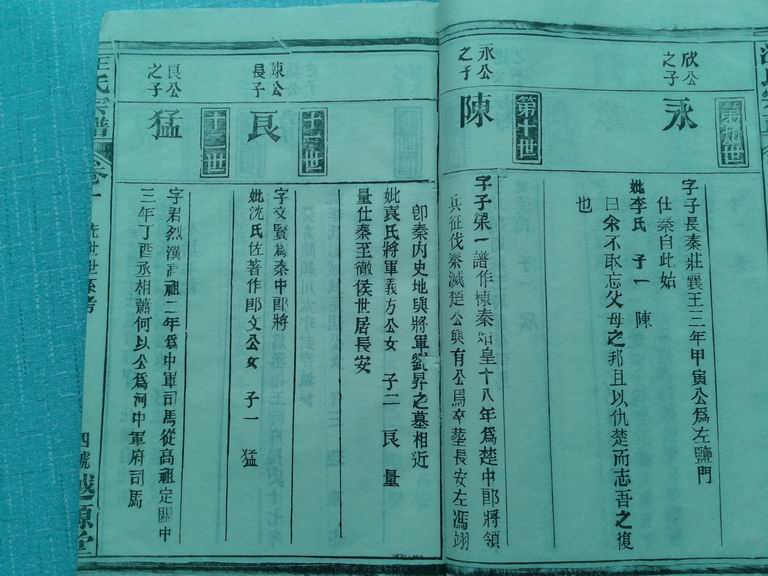 第九世
欣公之子
永
字子長秦莊襄王三年甲寅公爲左鹽門
仕秦自此始
妣李氏 子一 陳
曰余不敢忘父母之邦且以仇楚而志吾之復
也
第十世
永公之子
陳
字子梁一譜作棟秦始皇十八年爲楚中郎將領
兵征伐滅楚公與有公焉卒塟長安左馮翊
卽秦內史地與將軍劉昇之墓相近
妣袁氏將軍義方公女 子二 良 量
量仕秦至徹侯世居長安
十一世
陳公長子
良
字文賢爲秦中郎將
妣沈氏佐著作郎文公女 子一 猛
十二世
良公之子
猛
字君烈漢高祖二年爲中軍司馬從高祖定關中
三年丁酉丞相蕭何以公爲河中軍府司馬
汪氏宗譜 卷一 先世世系考 四號 越源堂